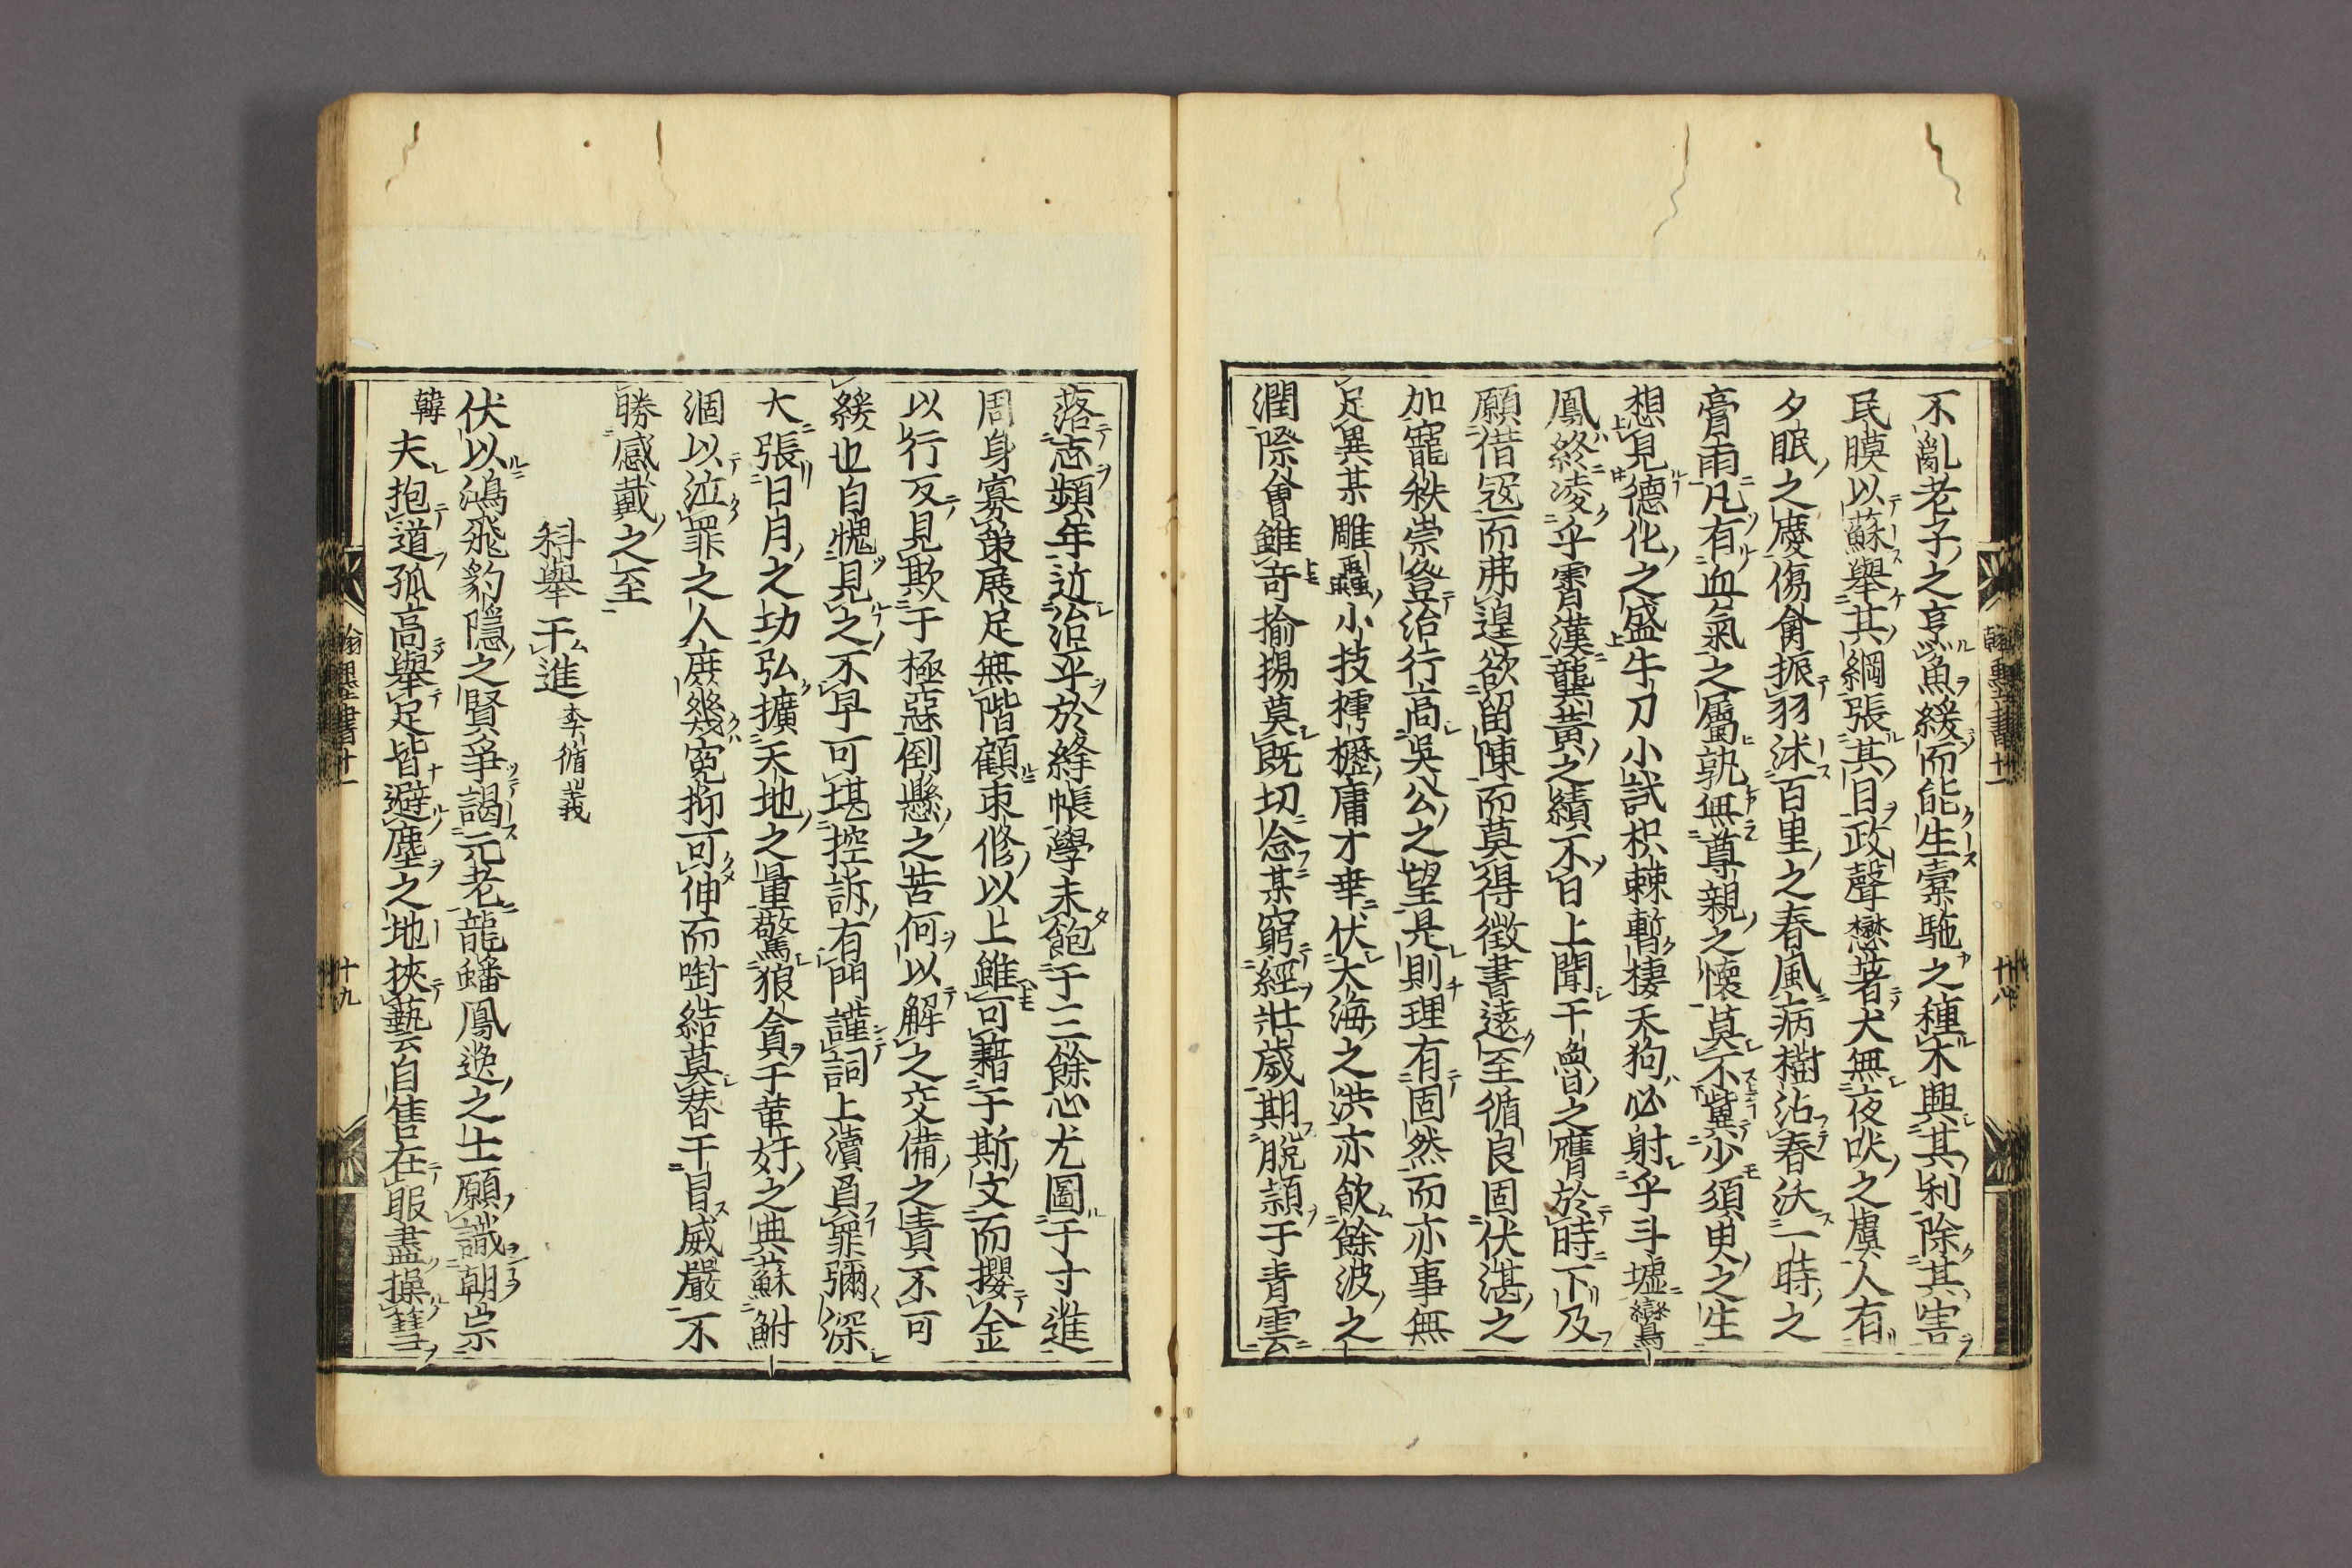 不亂老子之亨魚緩而能生橐駞之種木興其利除其害
民膜以蘇舉其綱張其目政聲懋著犬無夜吠之虞人有
夕眠之慶傷禽振羽沐百里之春風病樹沾春沃一時之
膏雨凡有血氣之屬孰無尊親之懷莫不冀少須臾之生
想見德化之盛牛刀小試枳棘暫棲天狗必射乎斗墟鸞
鳳終凌乎霄漢龔黃之績不日上聞干魯之膺於時下及
願借寇而弗遑欲留陳而莫得徵書遠至循良固伏湛之
加寵秩崇登治行高吳公之望是則理有固然而亦事無
足異某雕蟲小技樗櫪庸才幸伏大海之洪亦飲餘波之
潤際會雖奇揄揚莫既切念某窮經壯歲期脫穎于青雲
落志頻年近治平於絳帳學未飽于三餘心尤圖于寸進
周身寡策展足無階顧束修以上雖可藉于斯文而攫金
以行反見欺于極惡倒懸之苦何以解之交備之責不可
緩也自愧見之不早可堪控訴有門謹詞上瀆負罪彌深
大張日月之功弘擴天地之量驚狼貪于葷奸之典蘇鮒
涸以泣罪之人庶幾寃抑可伸而啣結莫替干冒威嚴不
勝感戴之至
科舉干進 李循義
伏以鴻飛豹隱之賢爭謁元老龍蟠鳳逸之士願識朝宗
韓
夫抱道孤高舉足皆避塵之地挾藝云自售在服盡操彗
翰墨書十一
十九